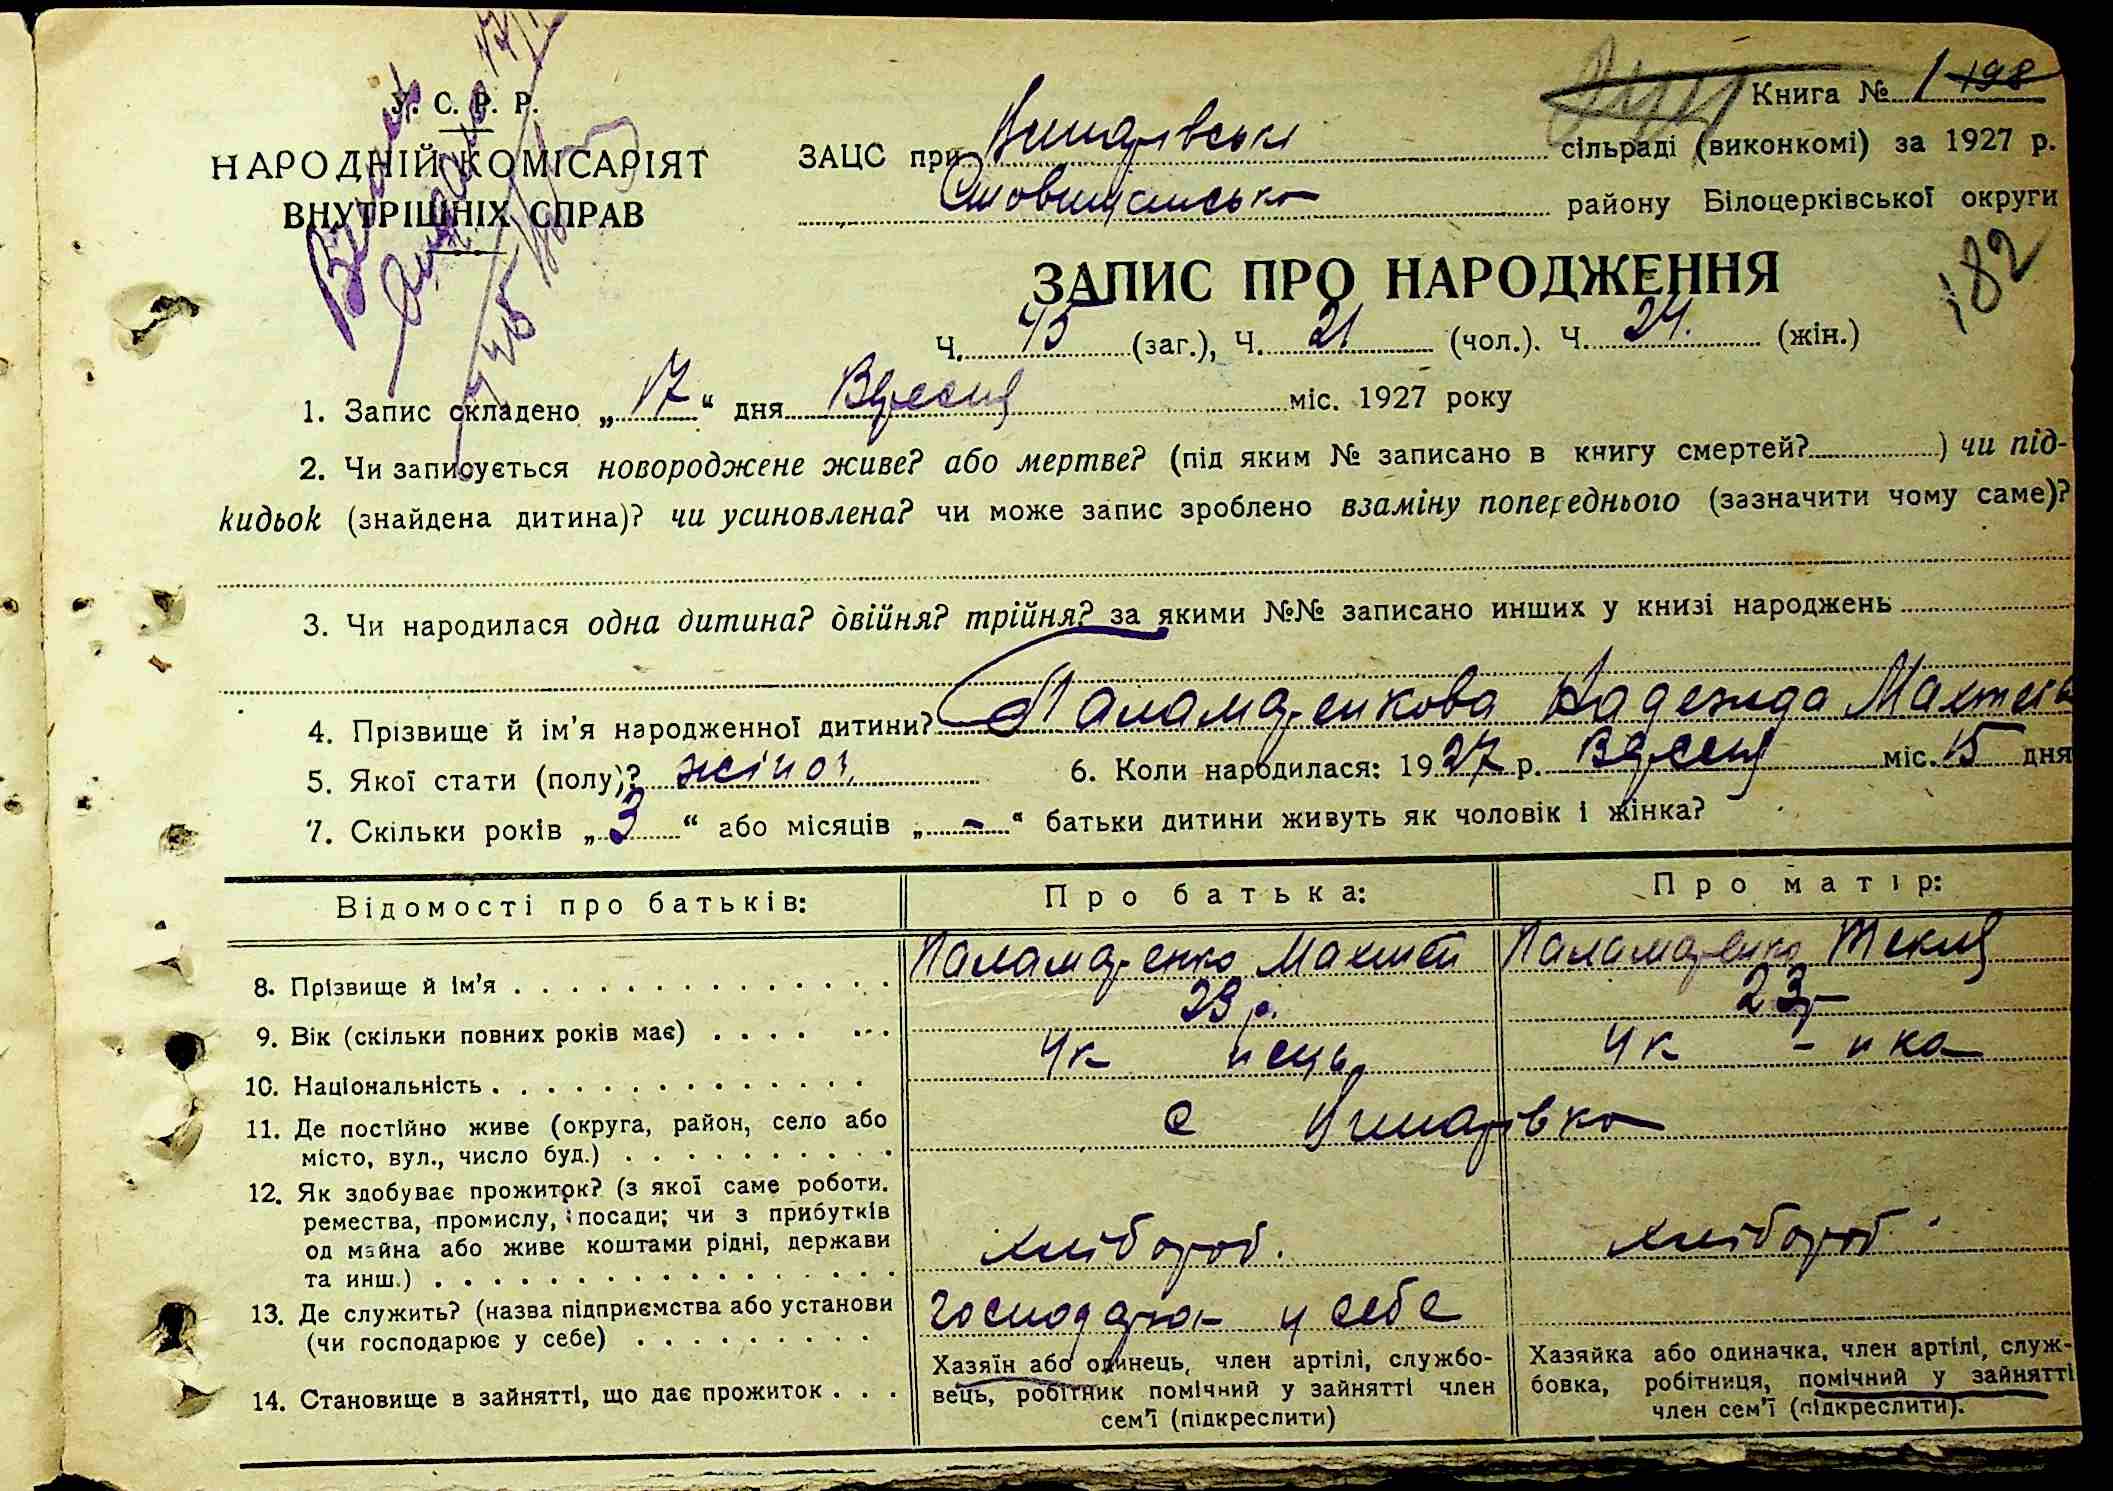 У. С. Р. Р.
НАРОДНІЙ КОМІСАРІЯТ
ВНУТРІШНІХ СПРАВ
Книга № 1 198
ЗАЦС при сільраді (виконкомі) за 1927 р.
району Білоцерківської округи
182
ЗАПИС ПРО НАРОДЖЕННЯ
Ч. 45 (заг.), Ч. 21 (чол.). Ч. 24. (жін.)
1. Запис складено „17“ дня Вересня міс. 1927 року
2. Чи записується новороджене живе? або мертве? (під яким № записано в книгу смертей?) чи під-
кидьок (знайдена дитина)? чи усиновлена? чи може запис зроблено взаміну попереднього (зазначити чому саме)?
3. Чи народилася одна дитина? двійня? трійня? за якими №№ записано инших у книзі народжень
4. Прізвище й ім'я народженної дитини? Паламаренкова Надежда
5. Якої стати (полу)? жіноч. 6. Коли народилася: 1927 р. Вересня міс. 15 дня
7. Скільки років „3“ або місяців „-“ батьки дитини живуть як чоловік і жінка?
Відомості про батьків: Про батька: Про матір:
8. Прізвище й ім'я Паламаренко Махтей Паламаренко Текля
9. Вік (скільки повних років має) 29 р. 23 р
10. Національність Ук нець Ук - нка
11. Де постійно живе (округа, район, село або
місто, вул., число буд.) с
12. Як здобуває прожиток? (з якої саме роботи.
ремества, промислу, посади; чи з прибутків
од майна або живе коштами рідні, держави
та инш.) хлібороб. хлібороб
13. Де служить? (назва підприємства або установи
(чи господарює у себе) господарює у себе
14. Становище в зайнятті, що дає прожиток
Хазяїн або одинець, член артілі, службо-
вець, робітник помічний у зайнятті член
сем'ї (підкреслити)
Хазяйка або одиначка, член артілі, служ-
бовка, робітниця, помічний у зайнятті
член сем'ї (підкреслити).